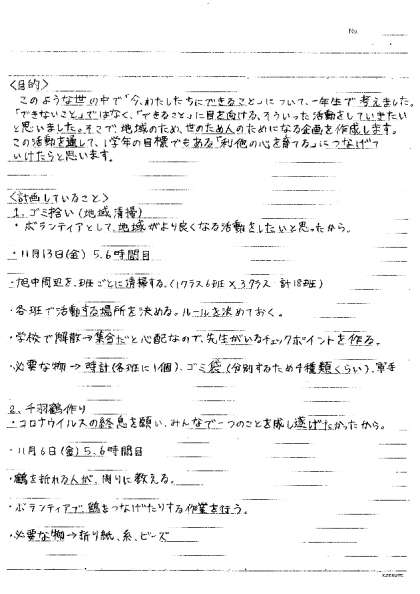 No
<目的>
このような世の中で「今、わたしたちにできること」について、一年生で考えました。
「できないこと」ではなく、「できること」に目を向ける、そういった活動をしていきたい
と思いました。そこで地域のため、世のため人のためになる企画を作成します。
この活動を通して、1学年の目標でもある「利他の心を育てる」につなげて
いけたらと思います。
<計画していること>
1. ゴミ拾い(地域清掃)
・ボランティアとして、地域がより良くなる活動をしたいと思ったから。
・11月13日(金) 5.6時間目
・旭中周辺を、班ごとに清掃する。(1クラス6班×3クラス 計18班)
・各班で活動する場所を決める。ルールを決めておく。
・学校で解散→集合だと心配なので、先生がいるチェックポイントを作る。
・必要な物→時計(各班に1個)、ゴミ袋(分別するため4種類くらい)、軍手
2. 千羽鶴作り
・コロナウイルスの終息を願い、みんなで一つのことを成し遂げたかったから。
・11月6日(金) 5.6時間目
・鶴を折れる人が、周りに教える。
・ボランティアで鶴をつなげたりする作業を行う。
・必要な物→折り紙、糸、ビーズ
KOKUYO